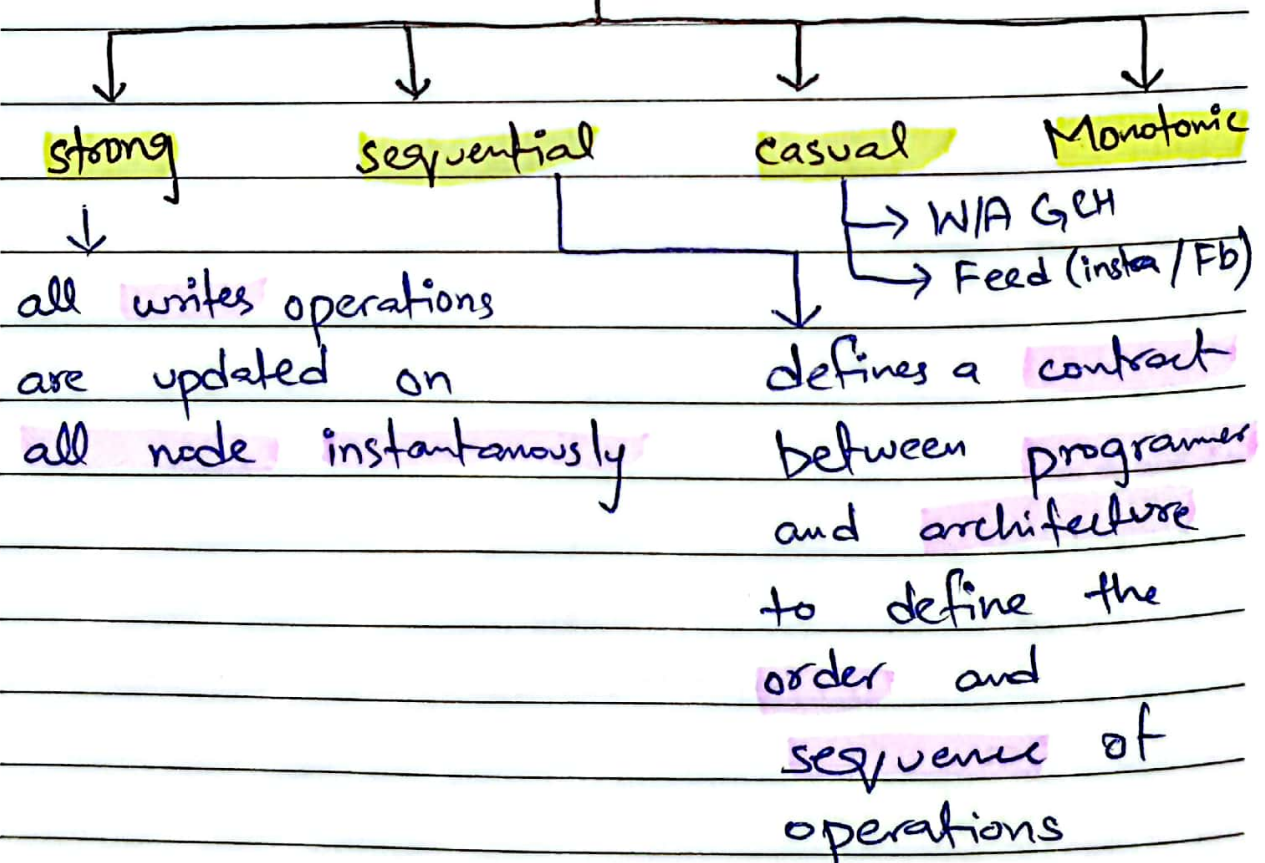 strong sequential casual Monotonic
→ W/A
→ Feed (insta / Fb)
all writes operations
are updated on
all node instantanously
defines a contract
between programer
and architecture
to define the
order and
sequence of
operations